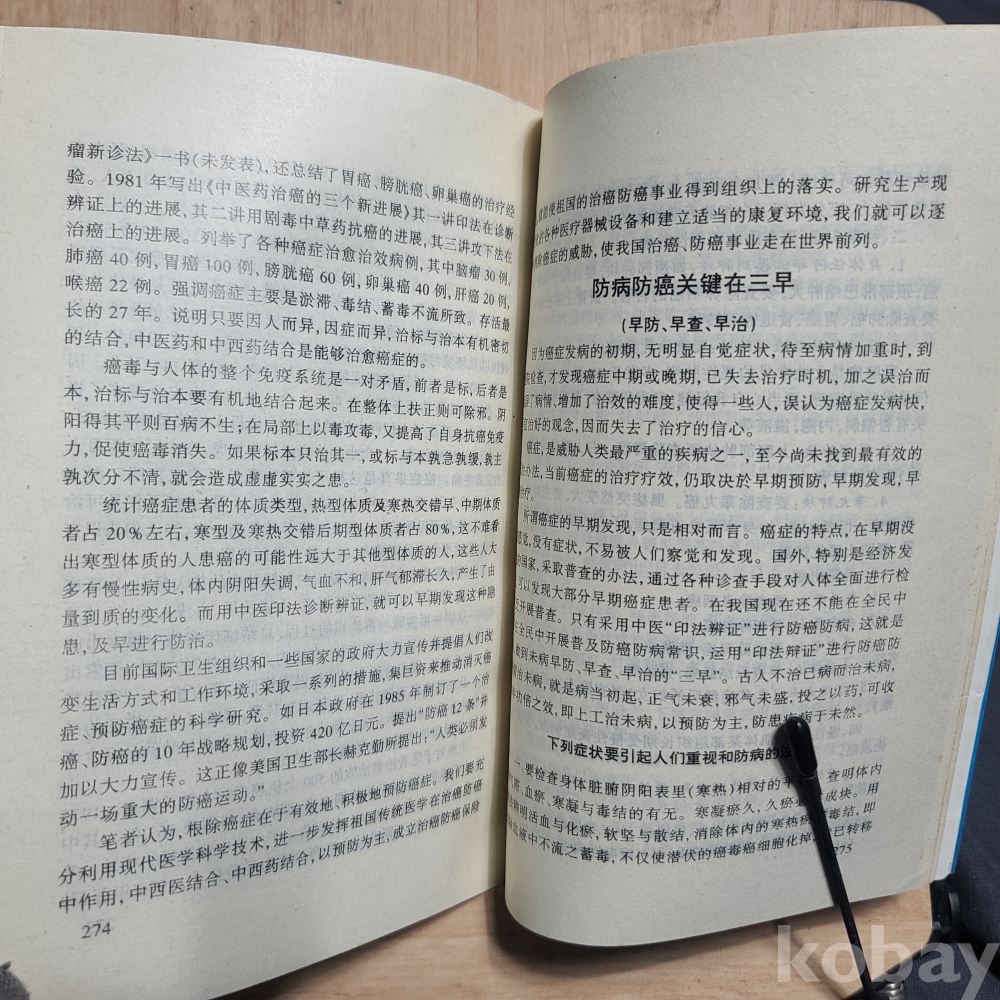 瘤新诊法》一书(未发表),还总结了胃癌、膀胱癌、卵巢癌的治疗经
验。1981年写出《中医药治癌的三个新进展》其一讲印法在诊断
辨证上的进展,其二讲用剧毒中草药抗癌的进展,其三讲攻下法在
治癌上的进展。列举了各种癌症治愈治效病例,其中脑瘤30例,
肺癌40例,胃癌100例,膀胱癌60例,卵巢癌40例,肝癌20例,
喉癌22例。强调癌症主要是淤滞、毒结、蓄毒不流所致。存活最
长的27年。说明只要因人而异,因症而异,治标与治本有机密切
的结合,中医药和中西药结合是能够治愈癌症的。
癌毒与人体的整个免疫系统是一对矛盾,前者是标,后者是
本,治标与治本要有机地结合起来。在整体上扶正则可除邪。阴
阳得其平则百病不生;在局部上以毒攻毒,又提高了自身抗癌免疫
力,促使癌毒消失。如果标本只治其一,或标与本孰急孰缓,孰主
孰次分不清,就会造成虚虚实实之患。
统计癌症患者的体质类型,热型体质及寒热交错早、中期体质
者占20%左右,寒型及寒热交错后期型体质者占80%,这不难看
出寒型体质的人患癌的可能性远大于其他型体质的人,这些人大
多有慢性病史,体内阴阳失调,气血不和,肝气郁滞长久,产生了由
量到质的变化。而用中医印法诊断辨证,就可以早期发现这种隐
患,及早进行防治。
目前国际卫生组织和一些国家的政府大力宣传并提倡人们改
变生活方式和工作环境,采取一系列的措施,集巨资来推动消灭癌
症、预防癌症的科学研究。如日本政府在1985年制订了一个治
癌、防癌的10年战略规划,投资420亿日元。提出“防癌12条”并
加以大力宣传。这正像美国卫生部长赫克勤所提出;“人类必须发
动一场重大的防癌运动。”
笔者认为,根除癌症在于有效地、积极地预防癌症。我们要充
分利用现代医学科学技术,进一步发挥祖国传统医学在治癌防癌
中作用,中西医结合、中西药结合,以预防为主,成立治癌防癌保险
274
就能使祖国的治癌防癌事业得到组织上的落实。研究生产现
各种医疗器械设备和建立适当的康复环境,我们就可以逐
除癌症的威胁,使我国治癌、防癌事业走在世界前列。
防病防癌关键在三早
(早防、早查、早治)
因为癌症发病的初期,无明显自觉症状,待至病情加重时,到
检查,才发现癌症中期或晚期,已失去治疗时机,加之误治而
了病情、增加了治效的难度,使得一些人,误认为癌症发病快,
治好的观念,因而失去了治疗的信心。
癌症,是威胁人类最严重的疾病之一,至今尚未找到最有效的
治办法,当前癌症的治疗疗效,仍取决於早期预防,早期发现,早
治疗。
所谓癌症的早期发现,只是相对而言。癌症的特点,在早期没
感觉,没有症状,不易被人们察觉和发现。国外,特别是经济发
的国家,采取普查的办法,通过各种诊查手段对人体全面进行检
可以发现大部分早期癌症患者。在我国现在还不能在全民中
开展普查。只有采用中医“印法辨证”进行防癌防病,这就是
在全民中开展普及防癌防病常识,运用“印法辩证”进行防癌防
做到未病早防、早查、早治的“三早”。古人不治已病而治未病,
治未病,就是病当初起,正气未衰,邪气未盛,投之以药,可收
功倍之效,即上工治未病,以预防为主,防患疾病于未然。
下列症状要引起人们重视和防病的
一、要检查身体脏腑阴阳表里(寒热)相对的平 查明体内
滞,血瘀,寒凝与毒结的有无。寒凝瘀久,久瘀必 成块。用
辨明活血与化瘀,软坚与散结,消除体内的寒热瘀 毒结,即
血液中不流之蓄毒,不仅使潜伏的癌毒癌细胞化掉, 已转移
275
kobay